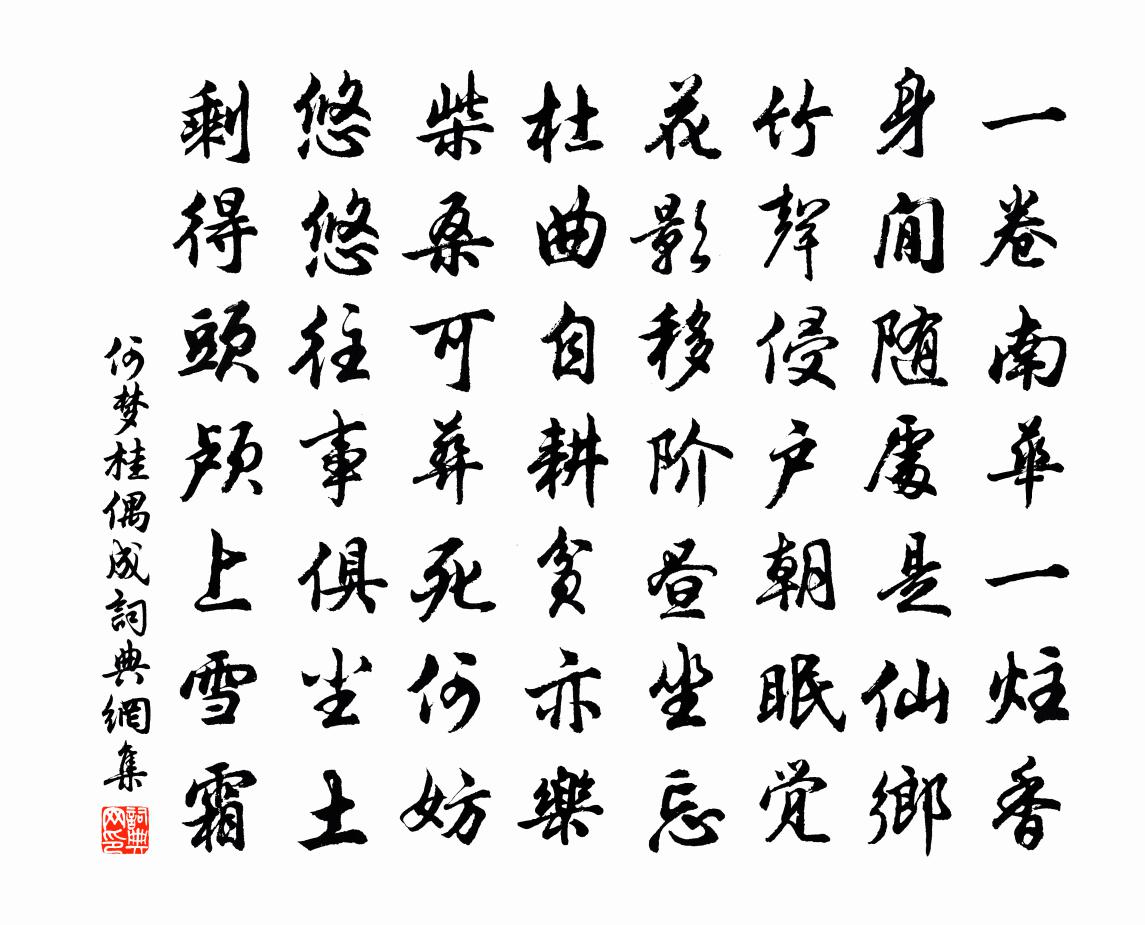 一卷南华一炷香
身閒随處是仙鄉
竹聲侵户朝眠觉
花影移阶昼坐忘
杜曲自耕贫亦樂
柴桑可葬死何妨
悠悠往事俱尘土
剩得頭颅上雪霜
何梦桂偶成詞典網集
詞典网印